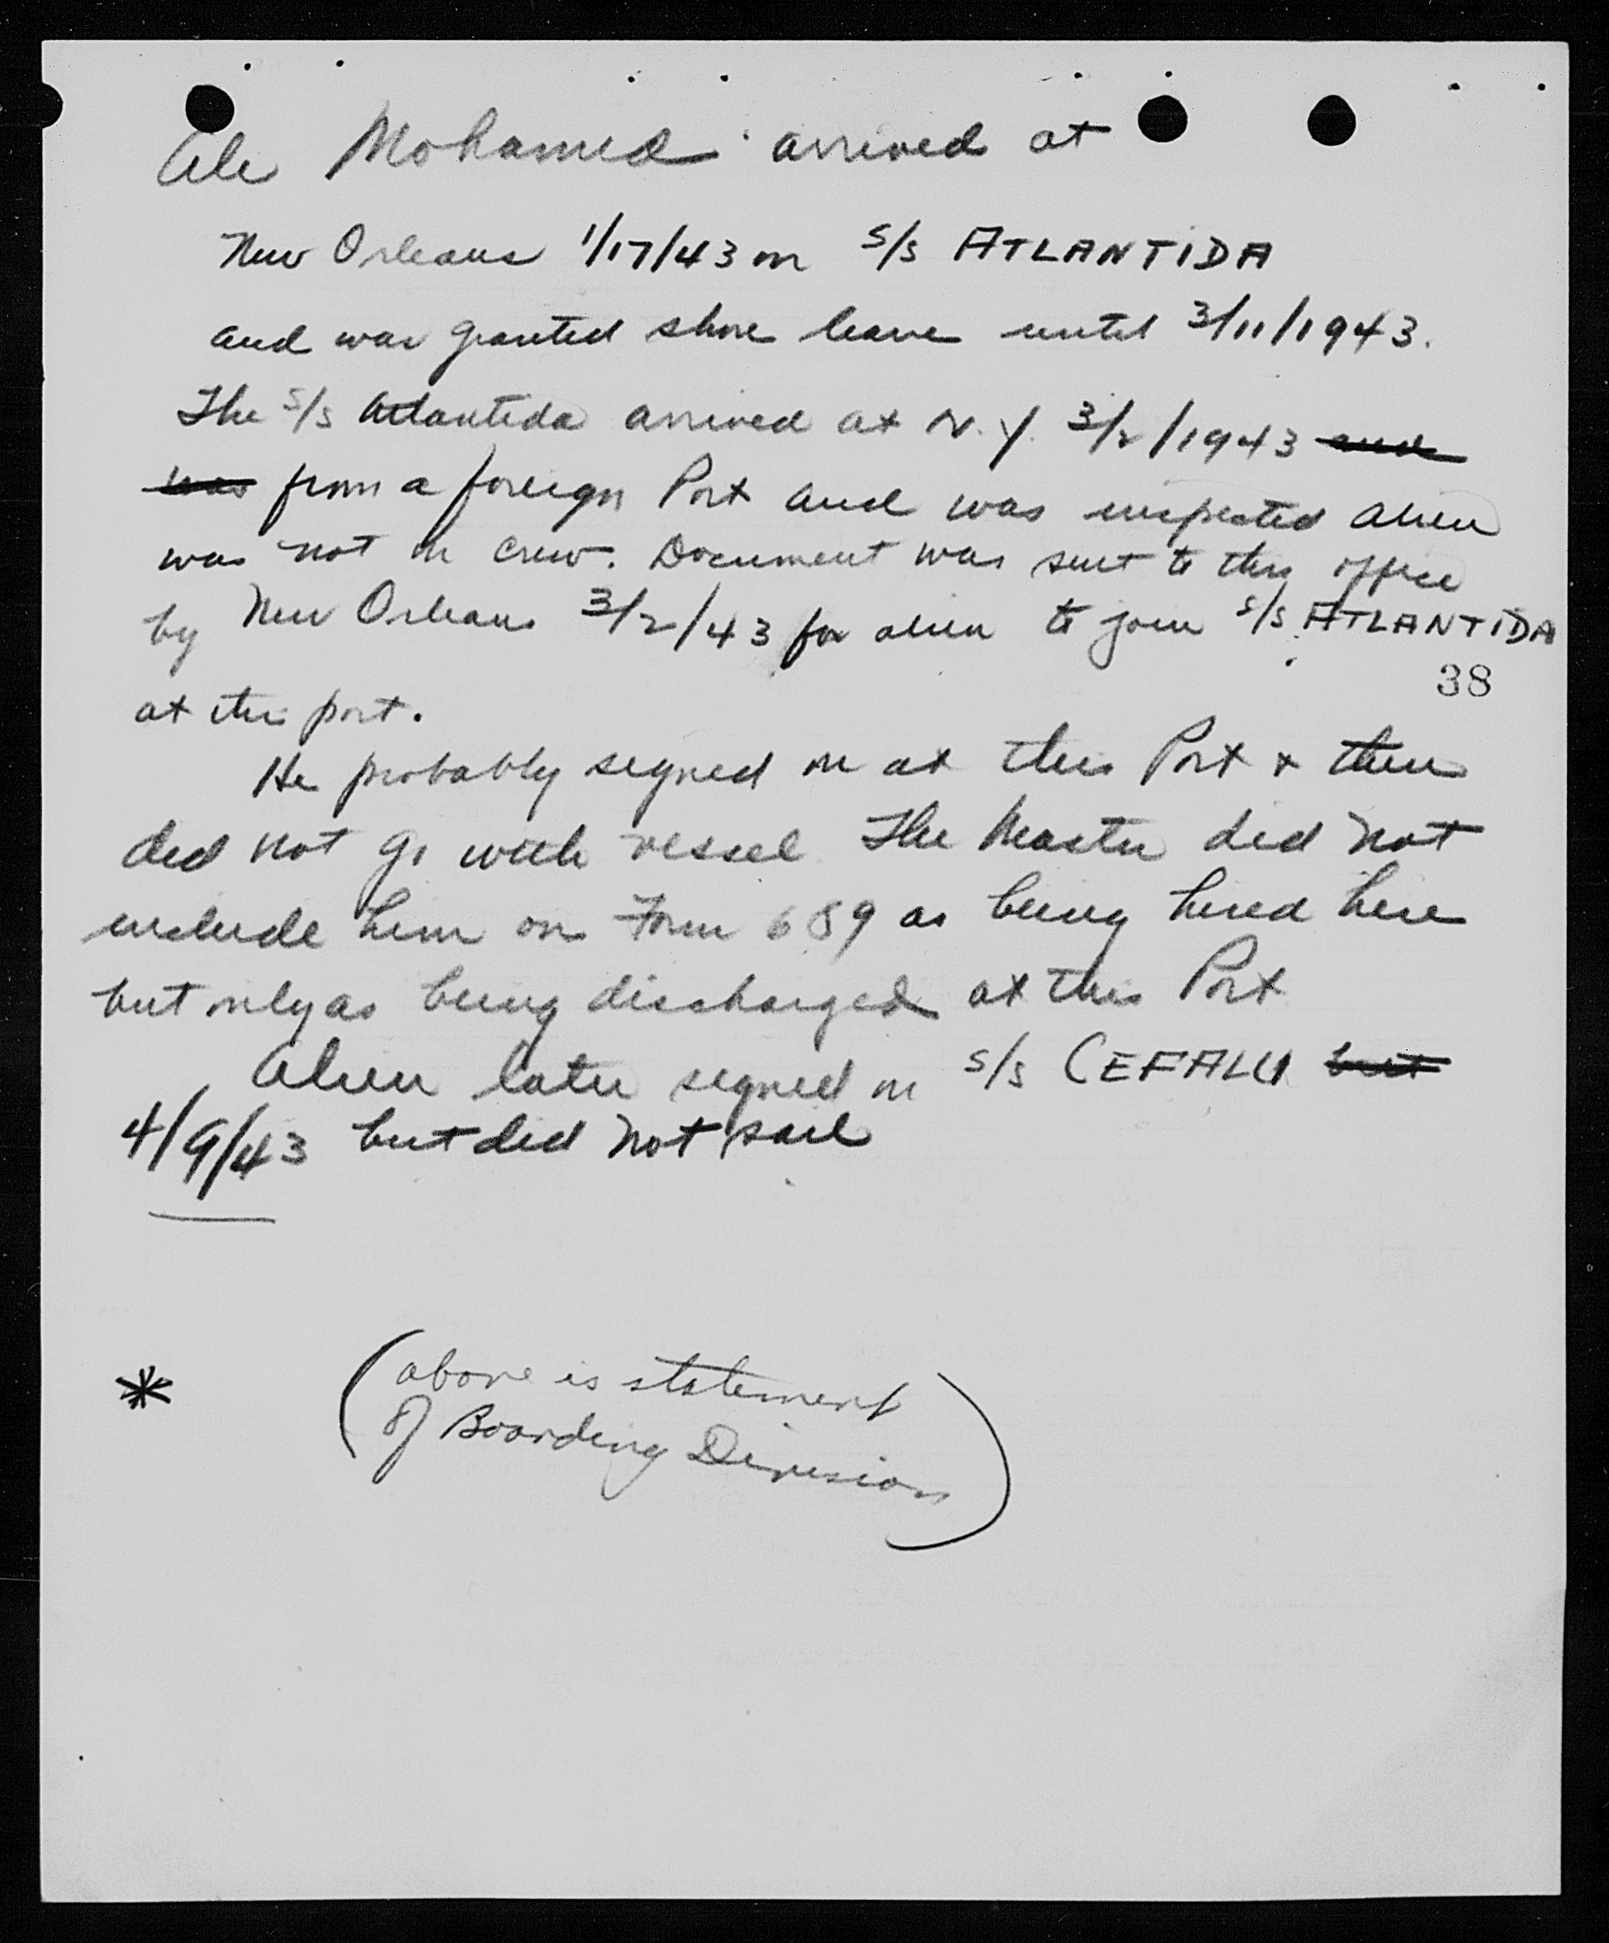 Ali Mohamed arrived at
New Orleans 1/17/43 on S/S ATLANTIDA
and was granted shore leave until 3/11/1943.
The S/S Atlantida arrived at N.Y. 3/2/1943 and
was from a foreign Port and was inspected alien
was not on crew. Document was sent to this office
by New Orleans 3/2/43 for alien to join S/S ATLANTIDA
38
at this port.
He probably signed on at this Port & then
did not go with vessel The Master did not
include him on Form 689 as being hired here
but only as being discharged at this Port
Alien later signed on S/S CEFALU but
4/9/43 but did not sail
* (above is statement
of Boarding Division)